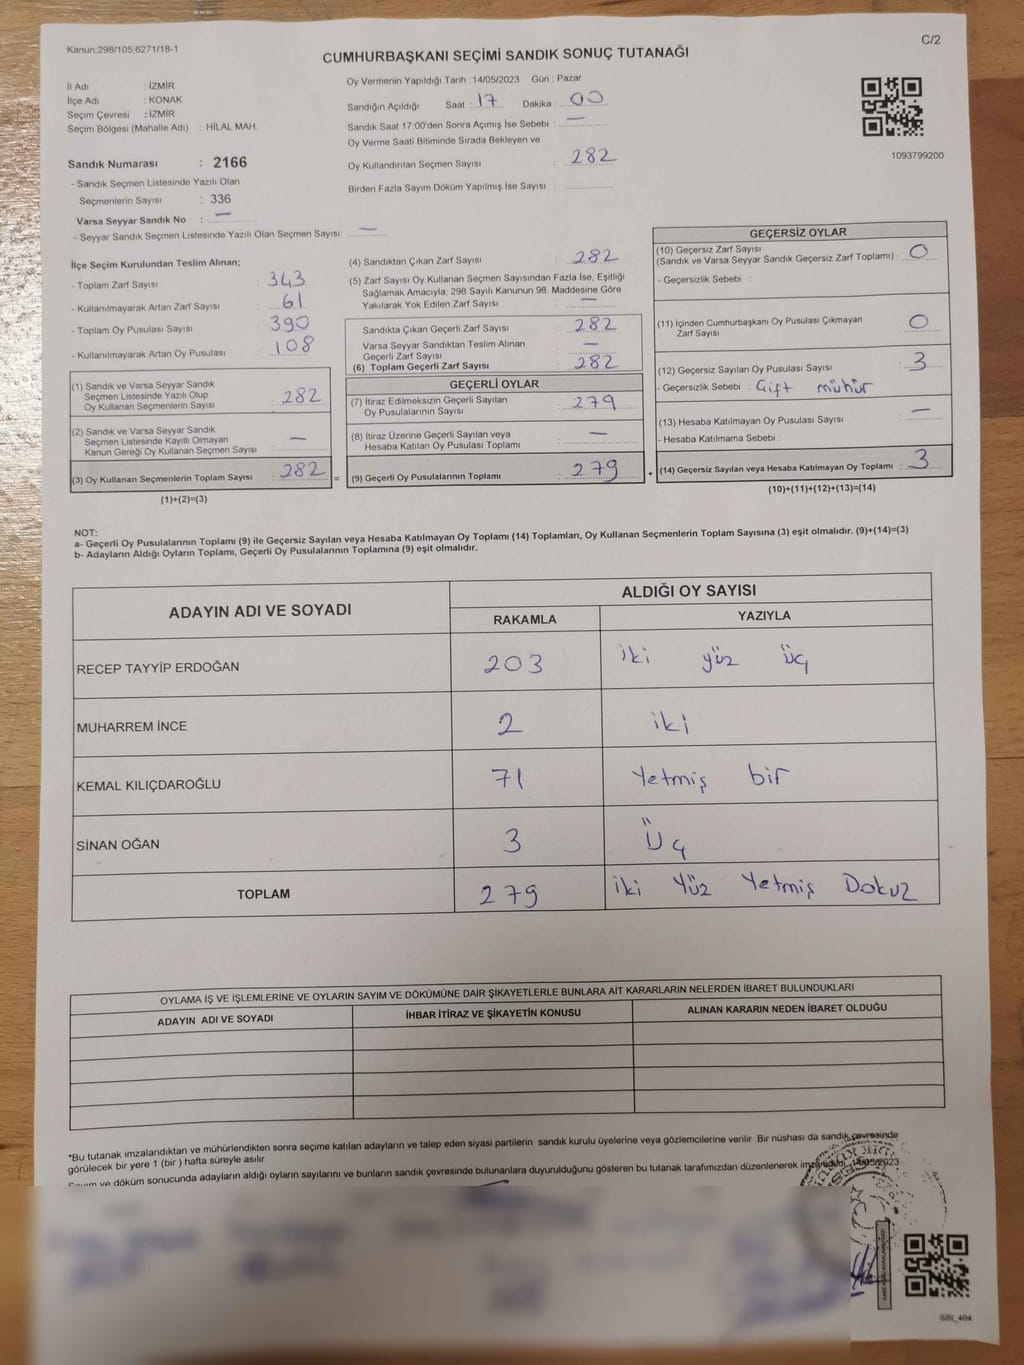 Kanun:298/105,6271/18-1
C/2
CUMHURBAŞKANI SEÇİMİ SANDIK SONUÇ TUTANAĞI
İl Adı : İZMİR
İlçe Adı : KONAK
Seçim Çevresi : İZMİR
Seçim Bölgesi (Mahalle Adı) : HİLAL MAH.
Sandık Numarası : 2166
- Sandık Seçmen Listesinde Yazılı Olan
Seçmenlerin Sayısı : 336
Varsa Seyyar Sandık No : —
- Seyyar Sandık Seçmen Listesinde Yazılı Olan Seçmen Sayısı: —
Oy Vermenin Yapıldığı Tarih : 14/05/2023 Gün : Pazar
Sandığın Açıldığı Saat : 17 Dakika : 00
Sandık Saat 17:00'den Sonra Açımış İse Sebebi : —
Oy Verme Saati Bitiminde Sırada Bekleyen ve
Oy Kullandırılan Seçmen Sayısı : 282
Birden Fazla Sayım Döküm Yapılmış İse Sayısı :
1093799200
İlçe Seçim Kurulundan Teslim Alınan;
- Toplam Zarf Sayısı : 343
- Kullanılmayarak Artan Zarf Sayısı : 61
- Toplam Oy Pusulası Sayısı : 390
- Kullanılmayarak Artan Oy Pusulası : 108
(1) Sandık ve Varsa Seyyar Sandık
Seçmen Listesinde Yazılı Olup
Oy Kullanan Seçmenlerin Sayısı : 282
(2) Sandık ve Varsa Seyyar Sandık
Seçmen Listesinde Kayıtlı Olmayan
Kanun Gereği Oy Kullanan Seçmen Sayısı : —
(3) Oy Kullanan Seçmenlerin Toplam Sayısı : 282 =
(1)+(2)=(3)
(4) Sandıktan Çıkan Zarf Sayısı : 282
(5) Zarf Sayısı Oy Kullanan Seçmen Sayısından Fazla İse, Eşitliği
Sağlamak Amacıyla; 298 Sayılı Kanunun 98. Maddesine Göre
Yakılarak Yok Edilen Zarf Sayısı : —
Sandıkta Çıkan Geçerli Zarf Sayısı : 282
Varsa Seyyar Sandıktan Teslim Alınan
Geçerli Zarf Sayısı : —
(6) Toplam Geçerli Zarf Sayısı : 282
GEÇERLİ OYLAR
(7) İtiraz Edilmeksizin Geçerli Sayılan
Oy Pusulalarının Sayısı : 279
(8) İtiraz Üzerine Geçerli Sayılan veya
Hesaba Katılan Oy Pusulası Toplamı : —
(9) Geçerli Oy Pusulalarının Toplamı : 279 +
GEÇERSİZ OYLAR
(10) Geçersiz Zarf Sayısı
(Sandık ve Varsa Seyyar Sandık Geçersiz Zarf Toplamı) : 0
- Geçersizlik Sebebi :
(11) İçinden Cumhurbaşkanı Oy Pusulası Çıkmayan
Zarf Sayısı : 0
(12) Geçersiz Sayılan Oy Pusulası Sayısı : 3
- Geçersizlik Sebebi : Çift mühür
(13) Hesaba Katılmayan Oy Pusulası Sayısı : —
- Hesaba Katılmama Sebebi :
(14) Geçersiz Sayılan veya Hesaba Katılmayan Oy Toplamı : 3
(10)+(11)+(12)+(13)=(14)
NOT:
a- Geçerli Oy Pusulalarının Toplamı (9) ile Geçersiz Sayılan veya Hesaba Katılmayan Oy Toplamı (14) Toplamları, Oy Kullanan Seçmenlerin Toplam Sayısına (3) eşit olmalıdır. (9)+(14)=(3)
b- Adayların Aldığı Oyların Toplamı, Geçerli Oy Pusulalarının Toplamına (9) eşit olmalıdır.
ADAYIN ADI VE SOYADI
ALDIĞI OY SAYISI
RAKAMLA YAZIYLA
RECEP TAYYİP ERDOĞAN 203 iki yüz üç
MUHARREM İNCE 2 iki
KEMAL KILIÇDAROĞLU 71 Yetmiş bir
SİNAN OĞAN 3 Üç
TOPLAM 279 iki Yüz Yetmiş Dokuz
OYLAMA İŞ VE İŞLEMLERİNE VE OYLARIN SAYIM VE DÖKÜMÜNE DAİR ŞİKAYETLERLE BUNLARA AİT KARARLARIN NELERDEN İBARET BULUNDUKLARI
ADAYIN ADI VE SOYADI İHBAR İTİRAZ VE ŞİKAYETİN KONUSU ALINAN KARARIN NEDEN İBARET OLDUĞU
*Bu tutanak imzalandıktan ve mühürlendikten sonra seçime katılan adayların ve talep eden siyasi partilerin sandık kurulu üyelerine veya gözlemcilerine verilir. Bir nüshası da sandık çevresinde
görülecek bir yere 1 (bir ) hafta süreyle asılır.
Sayım ve döküm sonucunda adayların aldığı oyların sayılarını ve bunların sandık çevresinde bulunanlara duyurulduğunu gösteren bu tutanak tarafımızdan düzenlenerek
SSt_404